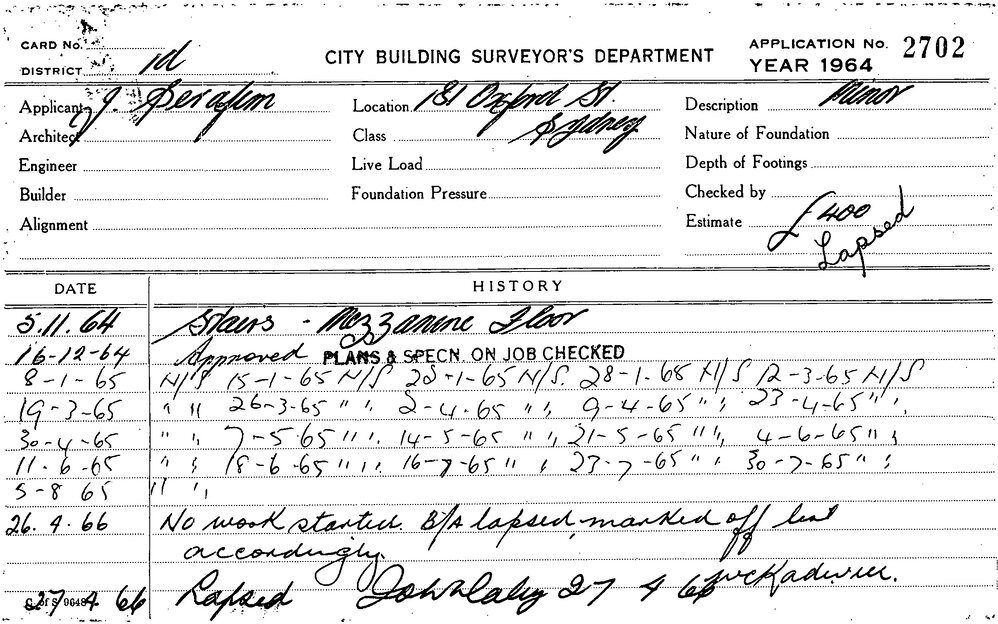 CARD No.
DISTRICT 1d
CITY BUILDING SURVEYOR'S DEPARTMENT
APPLICATION No. 2702
YEAR 1964
Applicant J. Serafim
Location 181 Oxford St.
Sydney
Description Minor
Architect
Class
Nature of Foundation
Engineer
Live Load
Depth of Footings
Builder
Foundation Pressure
Checked by
Alignment
Estimate £400
Lapsed
DATE HISTORY
5.11.64 Stairs - Mezzanine Floor
16-12-64 Approved PLANS & SPECN. ON JOB CHECKED
8-1-65 N/S 15-1-65 N/S 22-1-65 N/S. 28-1-65 N/S 12-3-65 N/S
19-3-65 " " 26-3-65 " " 2-4-65 " " 9-4-65 " " 23-4-65 " "
30-4-65 " " 7-5-65 " " 14-5-65 " " 21-5-65 " " 4-6-65 " "
11-6-65 " " 18-6-65 " " 16-7-65 " " 23-7-65 " " 30-7-65 " "
5-8 65 " "
26.4.66 No work started. B/A lapsed, marked off list
accordingly.
27 4 66 Lapsed 27 4 66